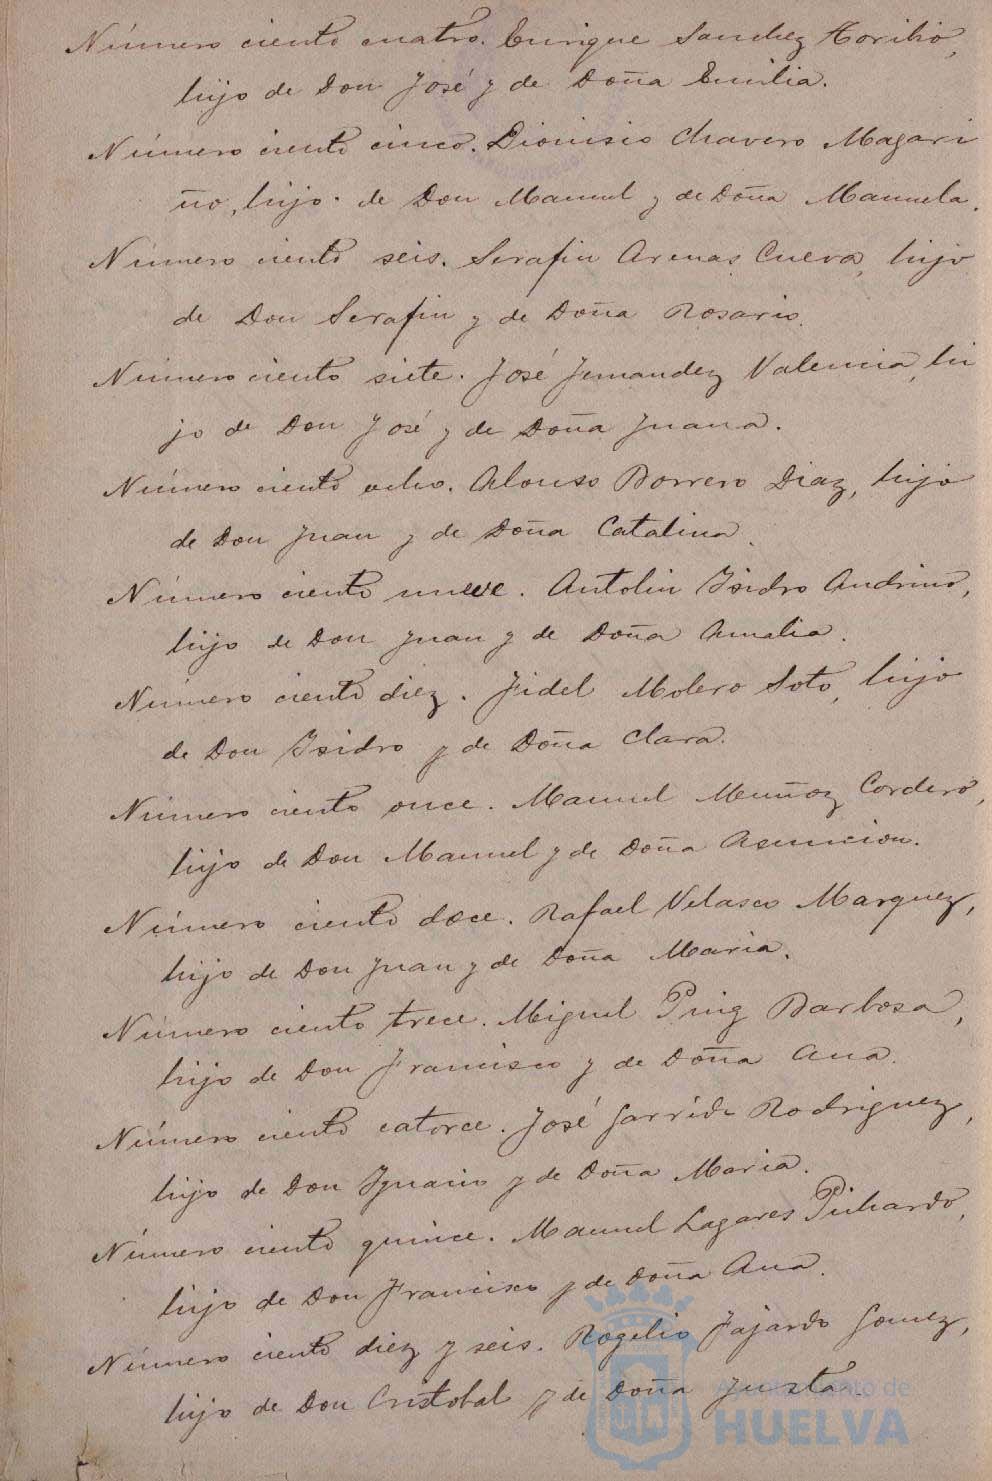 Número ciento cuatro. Enrique Sanchez Toribio,
hijo de Don José y de Doña Emilia.
Número ciento cinco. Dionisio Chavero Magari
ño, hijo de Don Manuel y de Doña Manuela.
Número ciento seis. Serafin Arenas Cueva, hijo
de Don Serafin y de Doña Rosario.
Número ciento siete. José Fernandez Valencia, hi
jo de Don José y de Doña Juana.
Número ciento ocho. Alonso Borrero Diaz, hijo
de Don Juan y de Doña Catalina.
Número ciento nueve. Antolin Isidro Andrino,
hijo de Don Juan y de Doña Amalia.
Número ciento diez. Fidel Molero Soto, hijo
de Don Isidro y de Doña Clara.
Número ciento once. Manuel Muñoz Cordero,
hijo de Don Manuel y de Doña Asuncion.
Número ciento doce. Rafael Velasco Marquez,
hijo de Don Juan y de Doña Maria.
Número ciento trece. Miguel Puig Barbosa,
hijo de Don Francisco y de Doña Ana.
Número ciento catorce. José Garrido Rodriguez,
hijo de Don Ignacio y de Doña Maria.
Número ciento quince. Manuel Lagares Pichardo,
hijo de Don Francisco y de Doña Ana.
Número ciento diez y seis. Rogelio Fajardo Gomez,
hijo de Don Cristobal y de Doña Justa
Ayuntamiento de
HUELVA